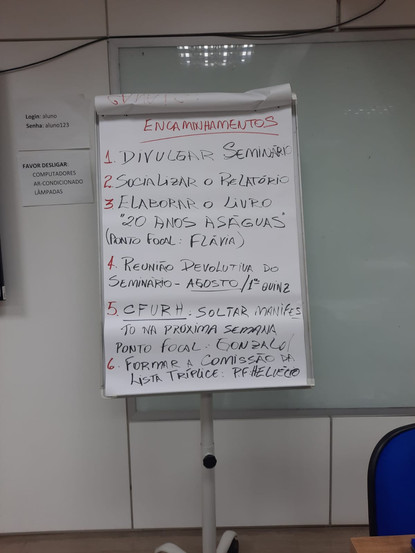 Login: aluno
Senha: aluno123
FAVOR DESLIGAR:
COMPUTADORES
AR CONDICIONADO
LÂMPADAS
ENCAMINHAMENTOS
1. DIVULGAR SEMINÁRIO
2. SOCIALIZAR O RELATÓRIO
3 ELABORAR O LIVRO
"20 ANOS ASÁGUAS"
(PONTO FOCAL: FLÁVIA)
4. REUNIÃO DEVOLUTIVA DO
SEMINÁRIO - AGOSTO/1ª QUINZ
5. CFURH. SOLTAR MANIFES
TO NA PRÓXIMA SEMANA
PONTO FOCAL: GONZALO/
6. FORMAR A COMISSÃO DA
LISTA TRÍPLICE: PF HELVÉCIO